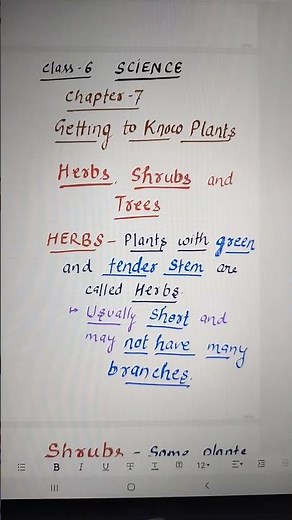 Class-6 SCIENCE
Chapter-7
Getting to Know Plants
Herbs, Shrubs and
Trees
HERBS - Plants with green
and tender stem are
called Herbs.
Usually short and
may not have many
branches.
Shrubs - Some plants
B I U T 12